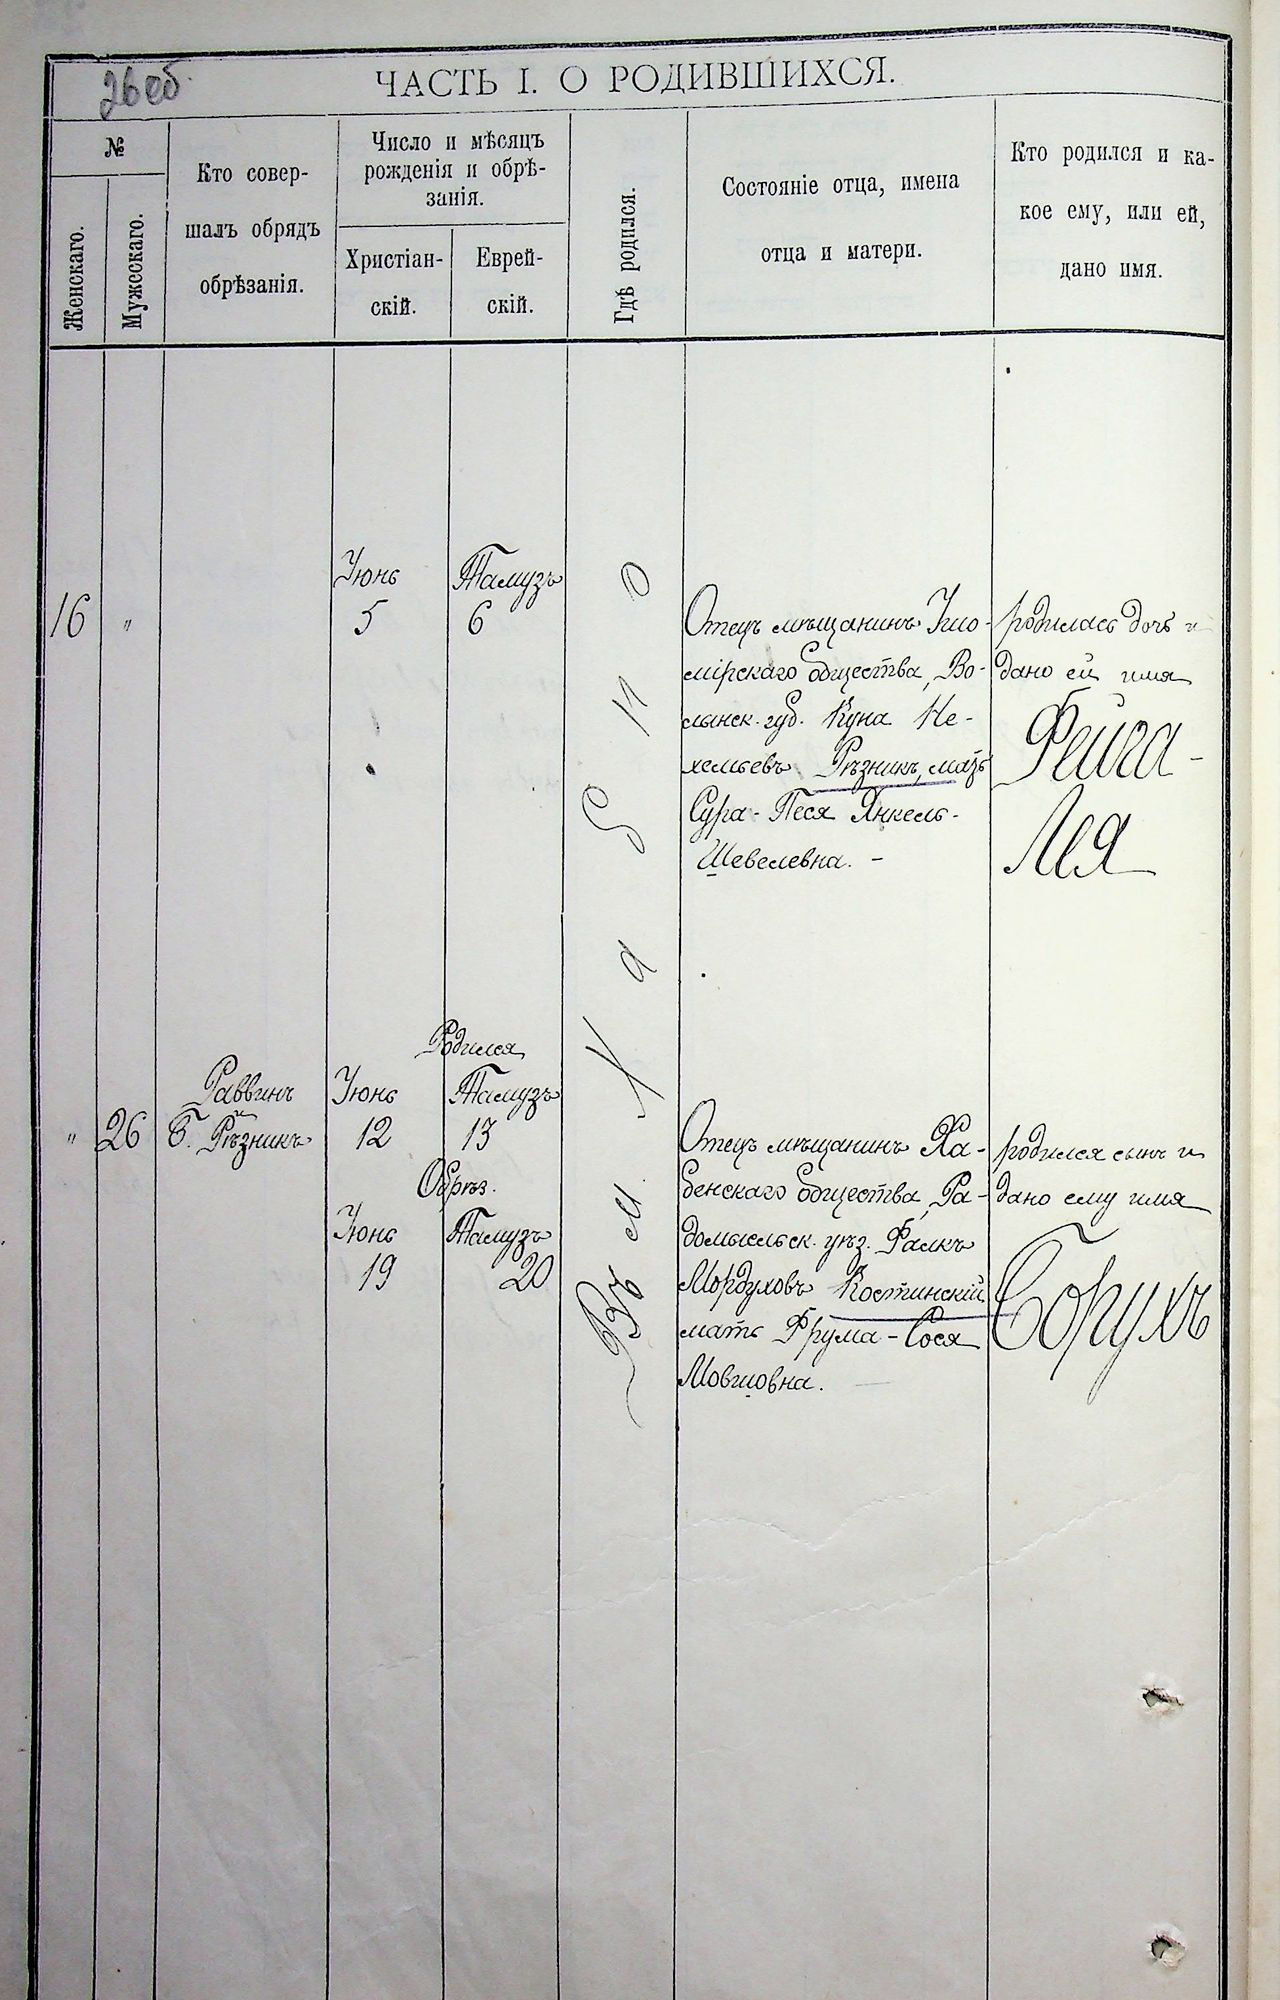 26об
ЧАСТЬ I. О РОДИВШИХСЯ.
№
Женскаго.
Мужескаго.
Кто совер-
шалъ обрядъ
обрѣзанія.
Число и мѣсяцъ
рожденія и обрѣ-
занія.
Христіан-
скій.
Еврей-
скій.
Гдѣ родился.
Состояніе отца, имена
отца и матери.
Кто родился и ка-
кое ему, или ей,
дано имя.
Въ м. Хабно
16
"
Іюнь
5
Тамузъ
6
Отецъ мѣщанинъ
мірскаго общества, Во-
лынск. губ. Куна Не-
хемьевъ Рѣзникъ, мать
Сура-Песя Янкель-
Шевелевна. -
родилась дочь и
дано ей имя
Фейга-
Лея
"
26
Раввинъ
Б. Рѣзникъ
Родился
Іюнь
12
Тамузъ
13
Обрѣз.
Іюнь
19
Тамузъ
20
Отецъ мѣщанинъ Ха-
бенскаго общества, Ра-
домысльск. уѣз. Фалкъ
Мордуховъ Костинскій
мать Фрума-Сося
Мовшовна.
родился сынъ и
дано ему имя
Борухъ